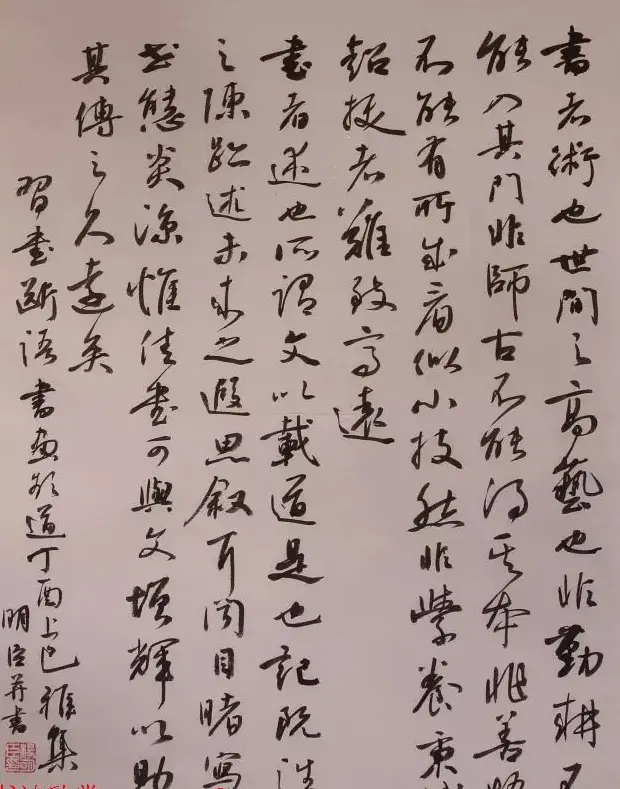 書者術也世間之高藝也非勤耕不
能入其門非師古不能得其本非善
不能有所成看似小技然非學養秉
超拔者難致高遠
書者述也所謂文以載道是也記既往
之陳跡述未來之遐思叙耳聞目睹寫
世態炎涼惟佳書可與文增輝以助
其傳之久遠矣
習書斷語書畫道丁酉上巳雅集
明臣并書